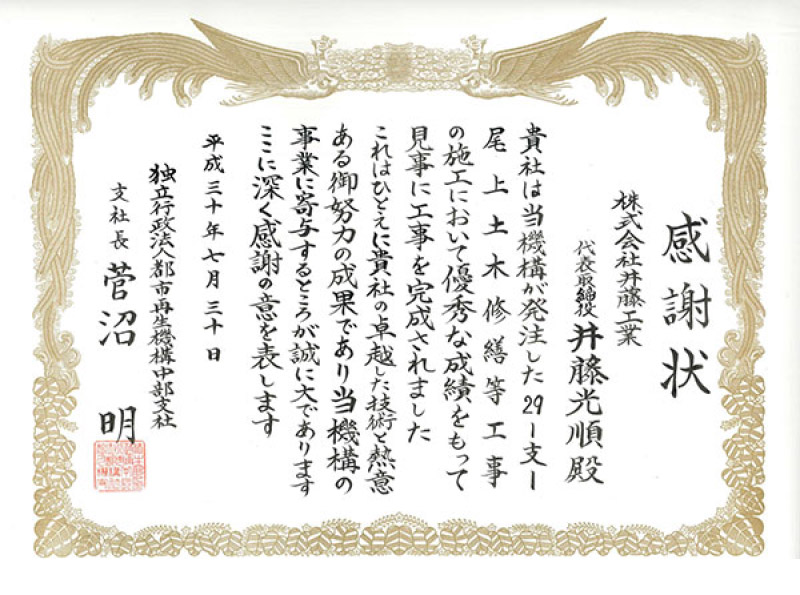 感謝状
株式会社井藤工業
代表取締役 井藤光順殿
貴社は当機構が発注した29ー支ー
尾上土木修繕等工事
の施工において優秀な成績をもって
見事に工事を完成されました
これはひとえに貴社の卓越した技術と熱意
ある御努力の成果であり当機構の
事業に寄与するところが誠に大であります
ここに深く感謝の意を表します
平成三十年七月三十日
独立行政法人都市再生機構中部支社
支社長 菅沼 明